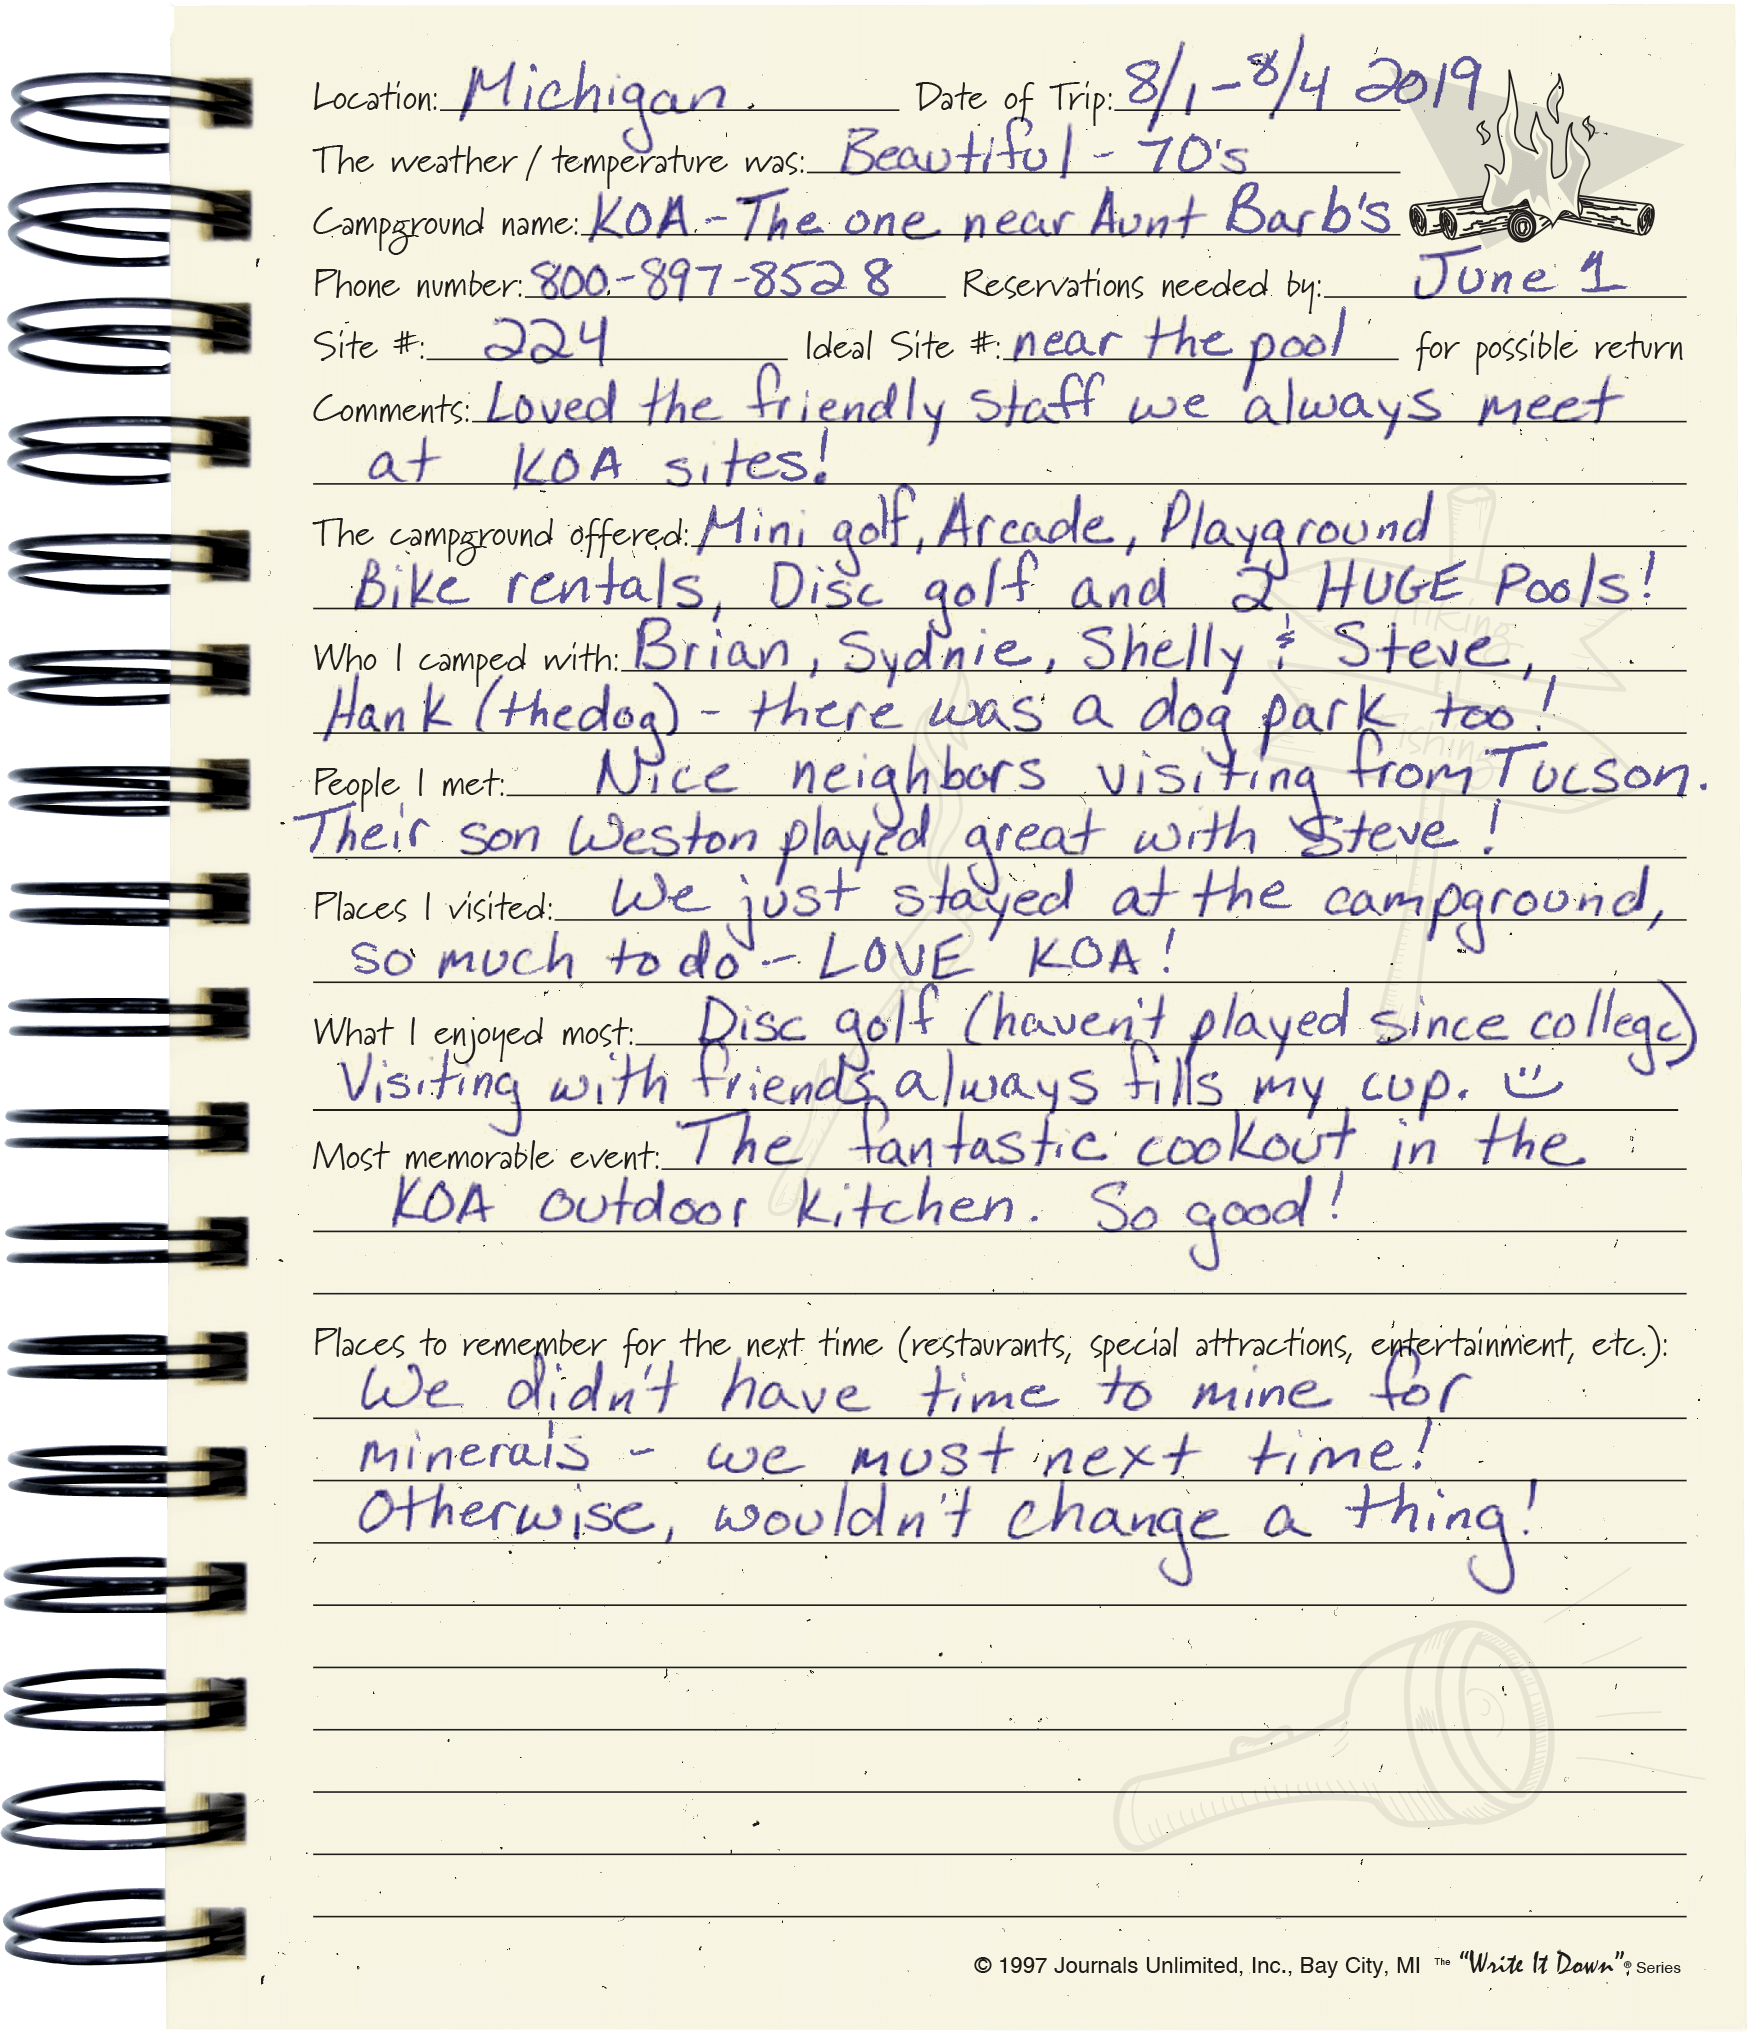 Location: Michigan. Date of Trip: 8/1-8/4 2019
The weather / temperature was: Beautiful - 70's
Campground name: KOA - The one near Aunt Barb's
Phone number: 800-897-8528 Reservations needed by: June 1
Site #: 224 Ideal Site #: near the pool for possible return
Comments: Loved the friendly staff we always meet
at KOA sites!
The campground offered: Mini golf, Arcade, Playground
Bike rentals, Disc golf and 2 HUGE Pools!
Who I camped with: Brian, Sydnie, Shelly & Steve,
Hank (the dog) - there was a dog park too!
People I met: Nice neighbors visiting from Tucson.
Their son Weston played great with Steve!
Places I visited: We just stayed at the campground,
so much to do - LOVE KOA!
What I enjoyed most: Disc golf (haven't played since college)
Visiting with friends always fills my cup. :)
Most memorable event: The fantastic cookout in the
KOA outdoor kitchen. So good!
Places to remember for the next time (restaurants, special attractions, entertainment, etc.):
We didn't have time to mine for
minerals - we must next time!
Otherwise, wouldn't change a thing!
© 1997 Journals Unlimited, Inc., Bay City, MI The "Write It Down"® Series